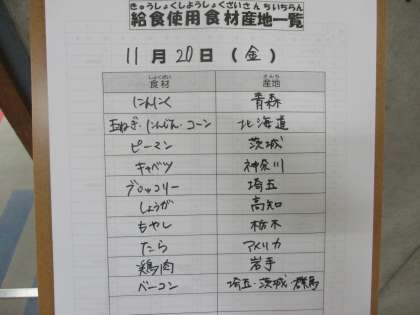 きゅうしょくしようしょくざいさんちいちらん
給食使用食材産地一覧
11月20日（金）
しょくざい さんち
食材 産地
にんにく 青森
玉ねぎ・にんじん・コーン 北海道
ピーマン 茨城
キャベツ 神奈川
ブロッコリー 埼玉
しょうが 高知
もやし 栃木
たら アメリカ
鶏肉 岩手
ベーコン 埼玉・茨城・群馬